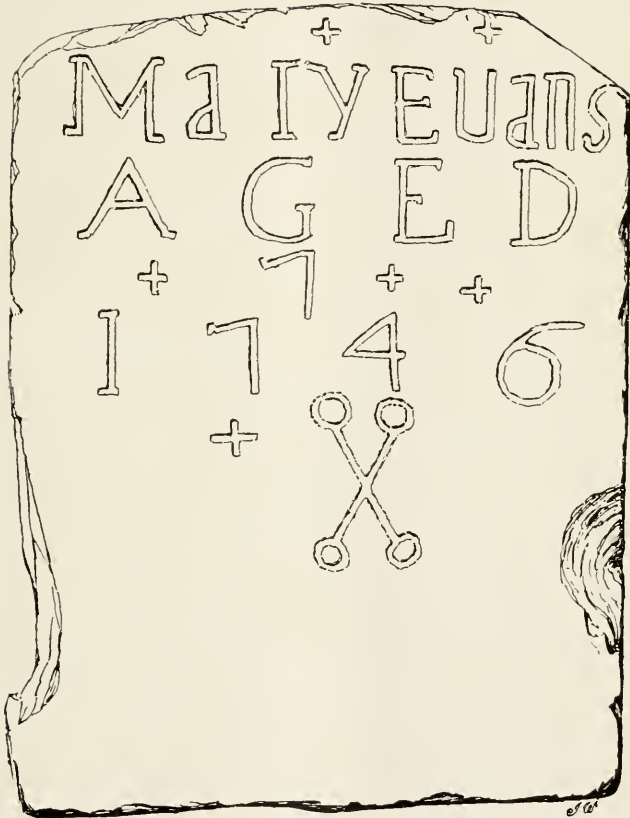 + +
MaIyEUans
AGED
+ 7 + +
1746
+
JW